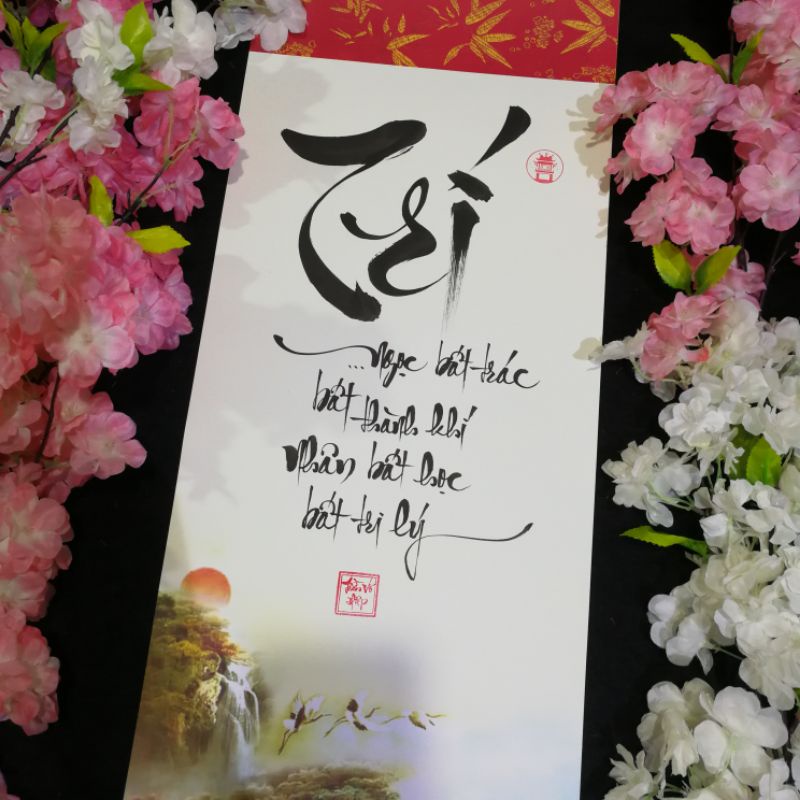 Trí
...ngọc bất trác
bất thành khí
nhân bất học
bất tri lý